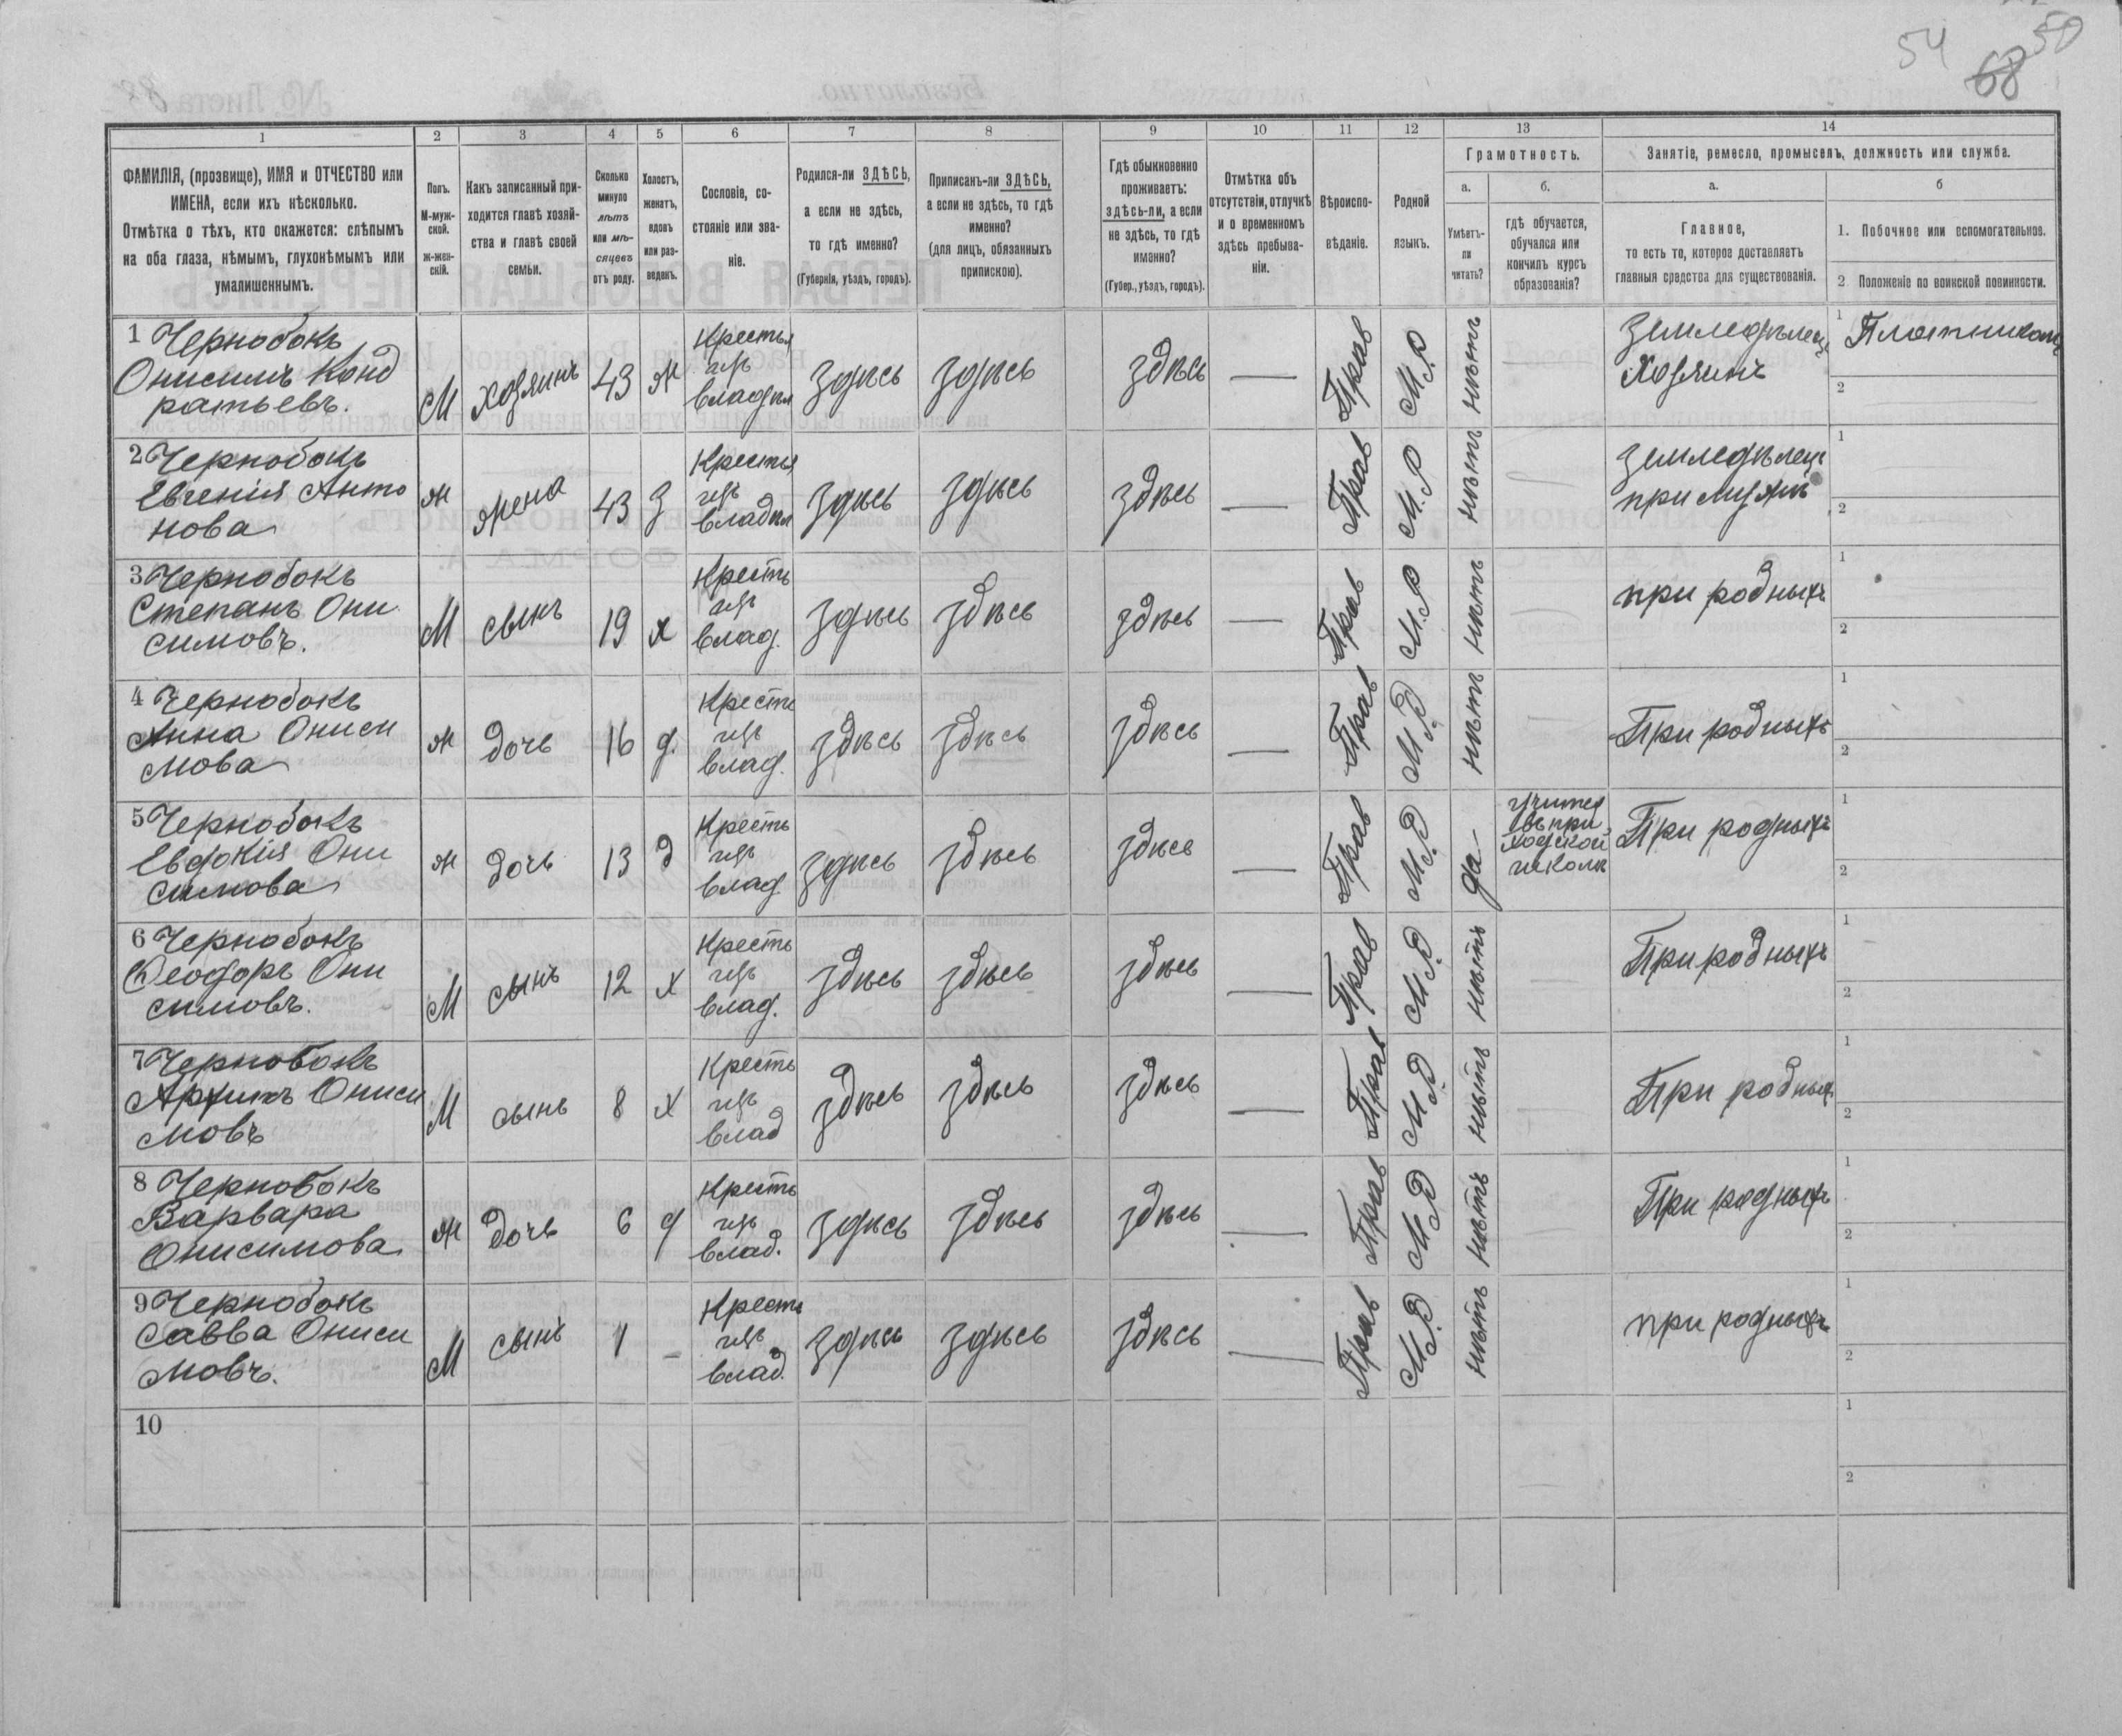 54 68 50
1 2 3 4 5 6 7 8 9 10 11 12 13 14
ФАМИЛІЯ, (прозвище), ИМЯ и ОТЧЕСТВО или
ИМЕНА, если ихъ нѣсколько.
Отмѣтка о тѣхъ, кто окажется: слѣпымъ
на оба глаза, нѣмымъ, глухонѣмымъ или
умалишеннымъ.
Полъ.
М-муж-
ской.
Ж-жен-
скій.
Какъ записанный при-
ходится главѣ хозяй-
ства и главѣ своей
семьи.
Сколько
минуло
лѣтъ
или мѣ-
сяцевъ
отъ роду.
Холостъ,
женатъ,
вдовъ
или раз-
веденъ.
Сословіе, со-
стояніе или зва-
ніе.
Родился-ли ЗДѢСЬ,
а если не здѣсь,
то гдѣ именно?
(Губернія, уѣздъ, городъ).
Приписанъ-ли ЗДѢСЬ,
а если не здѣсь, то гдѣ
именно?
(для лицъ, обязанныхъ
припискою).
Гдѣ обыкновенно
проживаетъ:
здѣсь-ли, а если
не здѣсь, то гдѣ
именно?
(Губер., уѣздъ, городъ).
Отмѣтка объ
отсутствіи, отлучкѣ
и о временномъ
здѣсь пребыва-
ніи.
Вѣроиспо-
вѣданіе.
Родной
языкъ.
Грамотность.
а.
Умѣетъ-
ли
читать?
б.
гдѣ обучается,
обучался или
кончилъ курсъ
образованія?
Занятіе, ремесло, промыселъ, должность или служба.
а.
Главное,
то есть то, которое доставляетъ
главныя средства для существованія.
б
1. Побочное или вспомогательное.
2 Положеніе по воинской повинности.
1 Чернобокъ
Онисимъ Конд
ратьевъ.
М хозяинъ 43 ж
Крестья
изъ
владѣл
здѣсь здѣсь здѣсь — Прав М.Р нѣтъ —
Земледѣлецъ
Хозяинъ
1 Плотникомъ
2
2 Чернобокъ
Евгенія Анто
нова
ж жена 43 з
Крестья
изъ
владѣл
здѣсь здѣсь здѣсь — Прав М.Р нѣтъ —
земледѣлец
при мужѣ
1
2
3 Чернобокъ
Степанъ Они
симовъ.
М сынъ 19 х
Кресть
изъ
влад.
здѣсь здѣсь здѣсь — Прав М.Р нѣтъ —
при родныхъ
1
2
4 Чернобокъ
Анна Ониси
мова
ж дочь 16 д.
Кресть
изъ
влад.
здѣсь здѣсь здѣсь — Прав М.Р нѣтъ —
При родныхъ
1
2
5 Чернобокъ
Евдокія Они
симова
ж дочь 13 д
Кресть
изъ
влад
здѣсь здѣсь здѣсь — Прав М.Р да
въ при
ходской
школѣ
При родныхъ
1
2
6 Чернобокъ
Феодоръ Они
симовъ.
М сынъ 12 х
Кресть
изъ
влад.
здѣсь здѣсь здѣсь — Прав М.Р нѣтъ —
При родныхъ
1
2
7 Чернобокъ
Ониси
мовъ
М сынъ 8 х
Кресть
изъ
влад
здѣсь здѣсь здѣсь — Прав М.Р нѣтъ —
При родных
1
2
8 Чернобокъ
Варвара
Онисимова
ж дочь 6 д
Кресть
изъ
влад.
здѣсь здѣсь здѣсь — Прав М.Р нѣтъ
При родныхъ
1
2
9 Чернобокъ
Савва Ониси
мовъ.
М сынъ 1 –
Кресть
изъ
влад.
здѣсь здѣсь здѣсь — Прав М.Р нѣтъ
при родныхъ
1
2
10
1
2